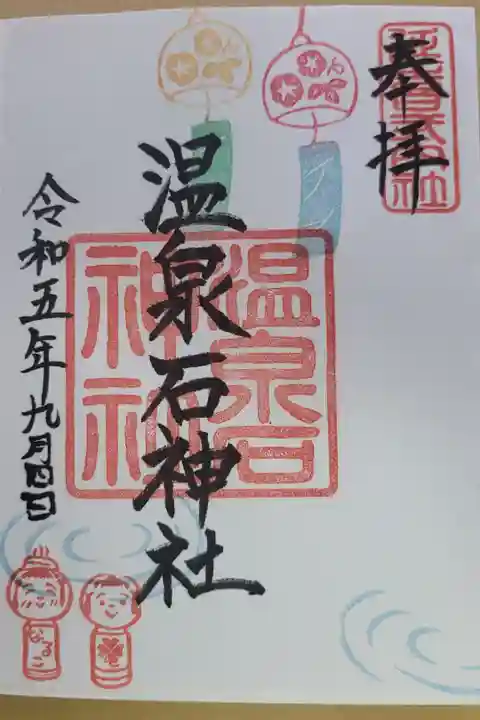 奉拝
延喜式内社
温泉石神社
温泉石
神社
令和五年九月四日
なるこ